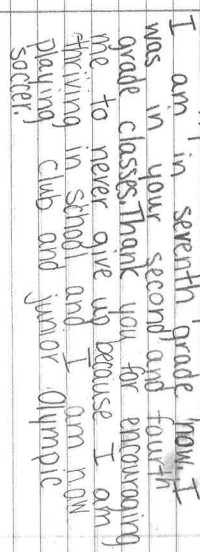 I am in seventh grade now. I
was in your second and fourth
grade classes. Thank you for encouraging
me to never give up because I am
thriving in school and I am now
playing club and junior Olympic
soccer.